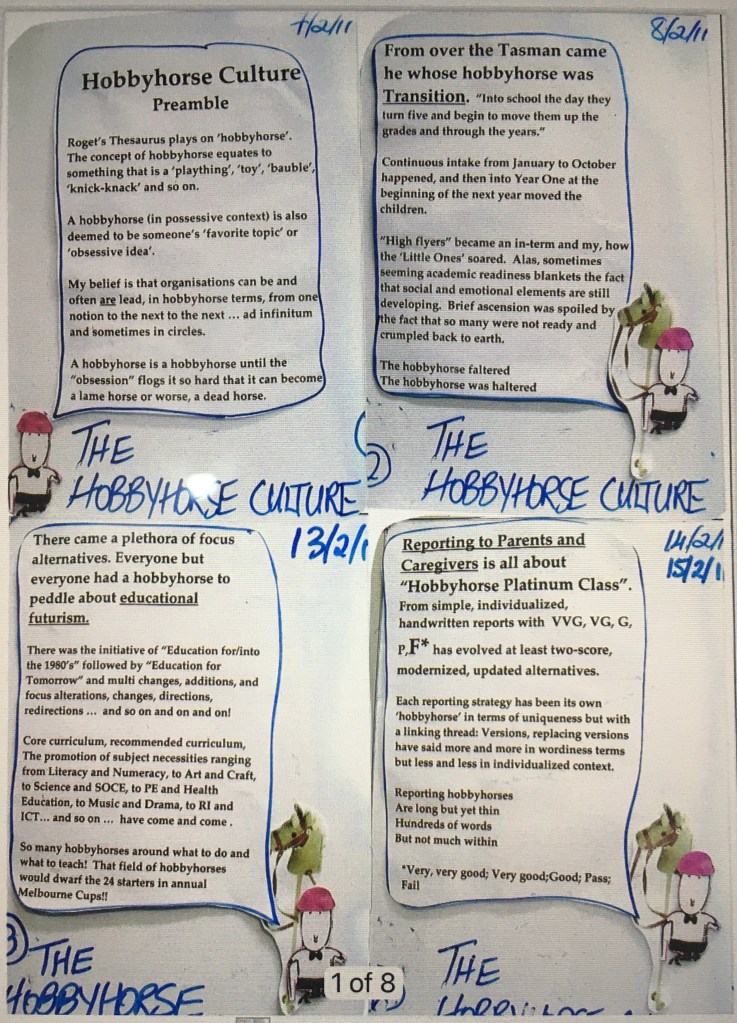 7/2/11
Hobbyhorse Culture
Preamble
Roget's Thesaurus plays on 'hobbyhorse'.
The concept of hobbyhorse equates to
something that is a 'plaything', 'toy', 'bauble',
'knick-knack' and so on.
A hobbyhorse (in possessive context) is also
deemed to be someone's 'favorite topic' or
'obsessive idea'.
My belief is that organisations can be and
often are lead, in hobbyhorse terms, from one
notion to the next to the next ... ad infinitum
and sometimes in circles.
A hobbyhorse is a hobbyhorse until the
"obsession" flogs it so hard that it can become
a lame horse or worse, a dead horse.
THE
HOBBYHORSE CULTURE
8/2/11
From over the Tasman came
he whose hobbyhorse was
Transition. "Into school the day they
turn five and begin to move them up the
grades and through the years."
Continuous intake from January to October
happened, and then into Year One at the
beginning of the next year moved the
children.
"High flyers" became an in-term and my, how
the 'Little Ones' soared. Alas, sometimes
seeming academic readiness blankets the fact
that social and emotional elements are still
developing. Brief ascension was spoiled by
the fact that so many were not ready and
crumpled back to earth.
The hobbyhorse faltered
The hobbyhorse was haltered
2
THE
HOBBYHORSE CULTURE
13/2/1
There came a plethora of focus
alternatives. Everyone but
everyone had a hobbyhorse to
peddle about educational
futurism.
There was the initiative of "Education for/into
the 1980's" followed by "Education for
Tomorrow" and multi changes, additions, and
focus alterations, changes, directions,
redirections ... and so on and on and on!
Core curriculum, recommended curriculum,
The promotion of subject necessities ranging
from Literacy and Numeracy, to Art and Craft,
to Science and SOCE, to PE and Health
Education, to Music and Drama, to RI and
ICT... and so on ... have come and come .
So many hobbyhorses around what to do and
what to teach! That field of hobbyhorses
would dwarf the 24 starters in annual
Melbourne Cups!!
3
THE
HOBBYHORSE
14/2/1
15/2/1
Reporting to Parents and
Caregivers is all about
"Hobbyhorse Platinum Class".
From simple, individualized,
handwritten reports with VVG, VG, G,
P,F* has evolved at least two-score,
modernized, updated alternatives.
Each reporting strategy has been its own
'hobbyhorse' in terms of uniqueness but with
a linking thread: Versions, replacing versions
have said more and more in wordiness terms
but less and less in individualized context.
Reporting hobbyhorses
Are long but yet thin
Hundreds of words
But not much within
*Very, very good; Very good;Good; Pass;
Fail
THE
1 of 8